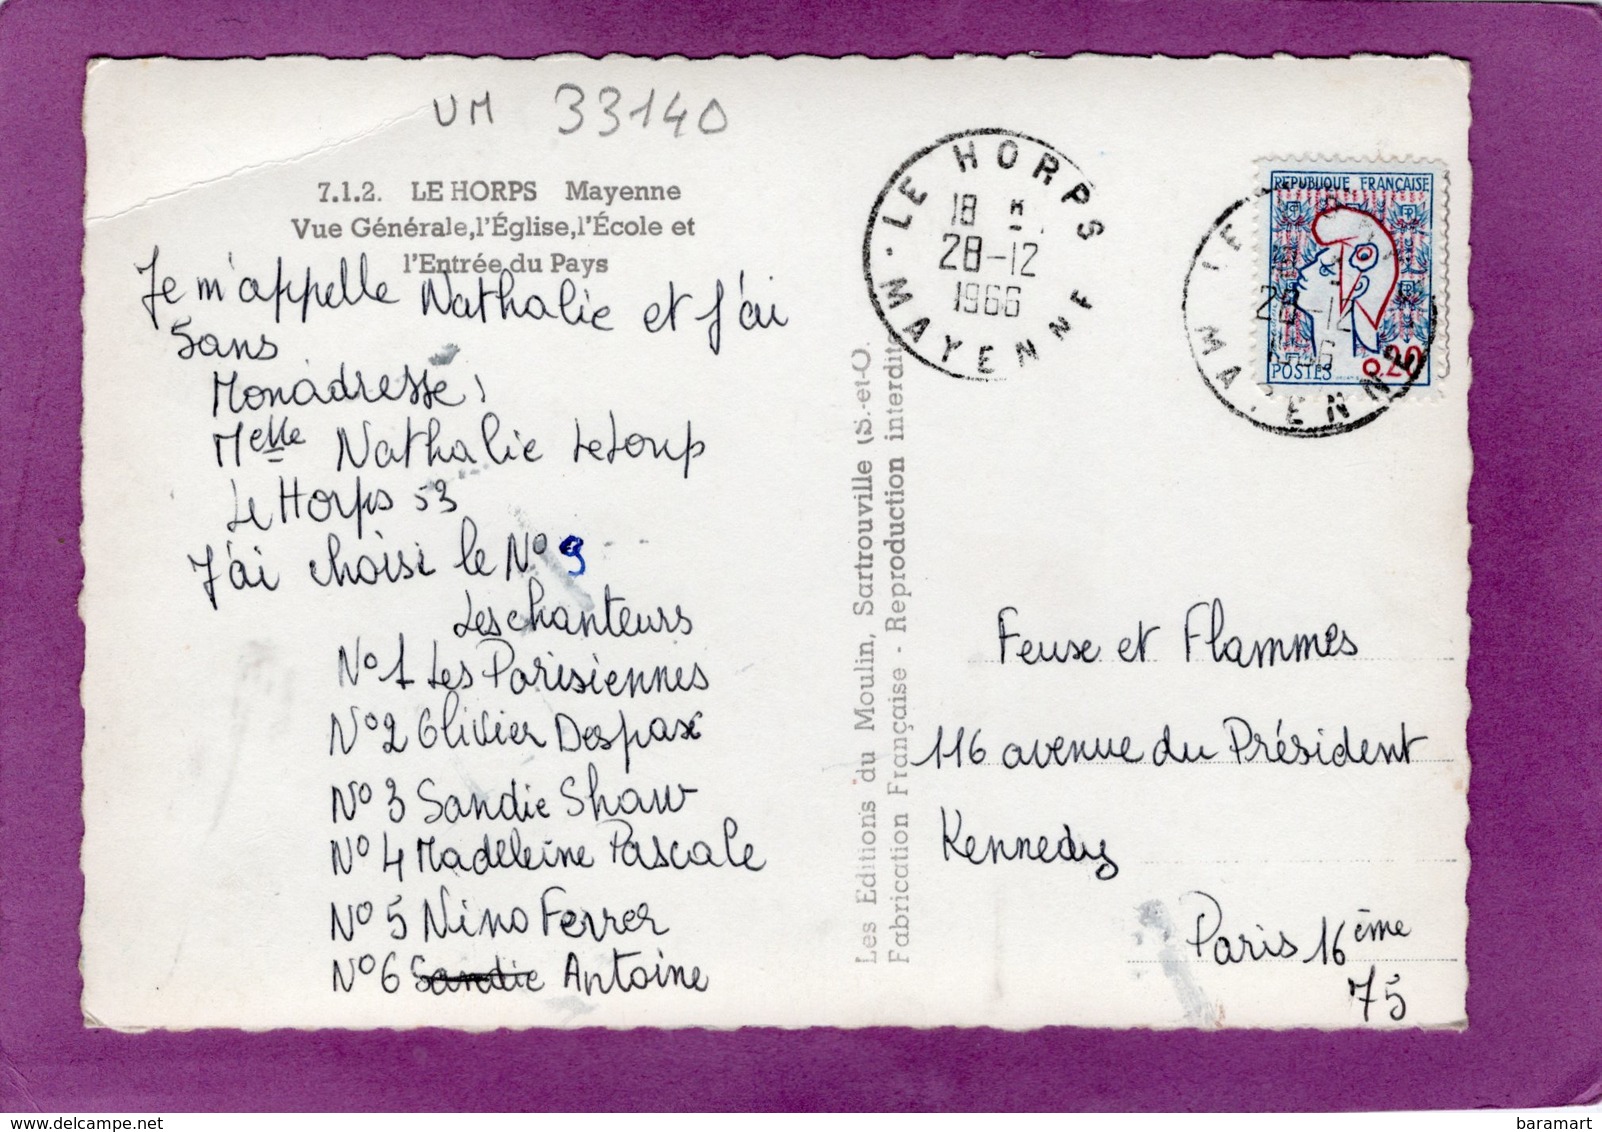 UM 33140
7.1.2. LE HORPS Mayenne
Vue Générale, l'Église, l'École et
l'Entrée du Pays
Je m'appelle Nathalie et J'ai
5ans
Monadresse,
Melle Nathalie Leloup
Le Horps 53
J'ai choisi le N° 9
Les chanteurs
N°1 Les Parisiennes
N°2 Olivier Despax
N°3 Sandie Shaw
N°4 Madeleine Pascale
N°5 Nino Ferrer
N°6 Sandie Antoine
Les Editions du Moulin, Sartrouville (S.-et-O.
Fabrication Française - Reproduction interdite
LE HORPS
18 H
28-12
1966
MAYENNE
REPUBLIQUE FRANÇAISE
POSTES 0,20
LE
28-12
MAYENNE
Feuse et Flammes
116 avenue du Président
Kennedy
Paris 16ème
75
baramart